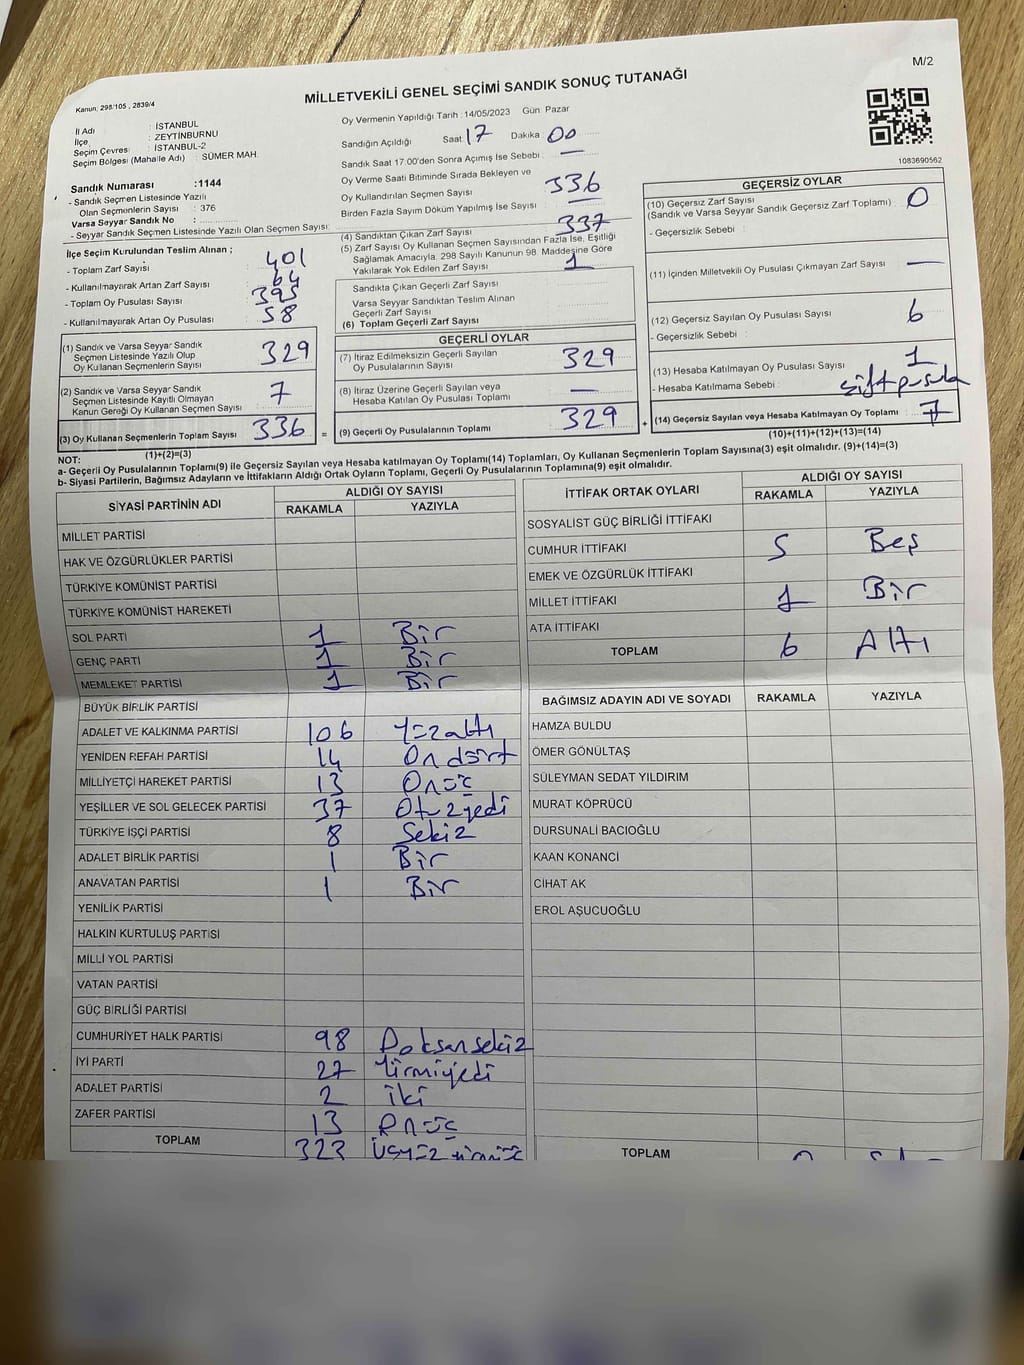 M/2
MİLLETVEKİLİ GENEL SEÇİMİ SANDIK SONUÇ TUTANAĞI
Kanun; 298/105 , 2839/4
İl Adı : İSTANBUL
İlçe : ZEYTİNBURNU
Seçim Çevresi : İSTANBUL-2
Seçim Bölgesi (Mahalle Adı) : SÜMER MAH.
Sandık Numarası :1144
- Sandık Seçmen Listesinde Yazılı
Olan Seçmenlerin Sayısı : 376
Varsa Seyyar Sandık No :
- Seyyar Sandık Seçmen Listesinde Yazılı Olan Seçmen Sayısı:
Oy Vermenin Yapıldığı Tarih :14/05/2023 Gün: Pazar
Sandığın Açıldığı Saat: 17 Dakika: 00
Sandık Saat 17.00'den Sonra Açımış İse Sebebi : —
Oy Verme Saati Bitiminde Sırada Bekleyen ve
Oy Kullandırılan Seçmen Sayısı 336
Birden Fazla Sayım Döküm Yapılmış İse Sayısı : —
1083690562
İlçe Seçim Kurulundan Teslim Alınan ;
- Toplam Zarf Sayısı 401
- Kullanılmayarak Artan Zarf Sayısı 64
- Toplam Oy Pusulası Sayısı 395
- Kullanılmayarak Artan Oy Pusulası 58
(1) Sandık ve Varsa Seyyar Sandık
Seçmen Listesinde Yazılı Olup
Oy Kullanan Seçmenlerin Sayısı 329
(2) Sandık ve Varsa Seyyar Sandık
Seçmen Listesinde Kayıtlı Olmayan
Kanun Gereği Oy Kullanan Seçmen Sayısı 7
(3) Oy Kullanan Seçmenlerin Toplam Sayısı 336 =
(1)+(2)=(3)
(4) Sandıktan Çıkan Zarf Sayısı 337
(5) Zarf Sayısı Oy Kullanan Seçmen Sayısından Fazla İse, Eşitliği
Sağlamak Amacıyla, 298 Sayılı Kanunun 98. Maddesine Göre
Yakılarak Yok Edilen Zarf Sayısı 1
Sandıkta Çıkan Geçerli Zarf Sayısı
Varsa Seyyar Sandıktan Teslim Alınan
Geçerli Zarf Sayısı
(6) Toplam Geçerli Zarf Sayısı
GEÇERLİ OYLAR
(7) İtiraz Edilmeksizin Geçerli Sayılan
Oy Pusulasının Sayısı 329
(8) İtiraz Üzerine Geçerli Sayılan veya
Hesaba Katılan Oy Pusulası Toplamı —
(9) Geçerli Oy Pusulalarının Toplamı 329 +
GEÇERSİZ OYLAR
(10) Geçersiz Zarf Sayısı 0
(Sandık ve Varsa Seyyar Sandık Geçersiz Zarf Toplamı)
- Geçersizlik Sebebi :
(11) İçinden Milletvekili Oy Pusulası Çıkmayan Zarf Sayısı —
(12) Geçersiz Sayılan Oy Pusulası Sayısı 6
- Geçersizlik Sebebi :
(13) Hesaba Katılmayan Oy Pusulası Sayısı 1
- Hesaba Katılmama Sebebi : çift pusula
(14) Geçersiz Sayılan veya Hesaba Katılmayan Oy Toplamı 7
(10)+(11)+(12)+(13)=(14)
NOT:
a- Geçerli Oy Pusulalarının Toplamı(9) ile Geçersiz Sayılan veya Hesaba katılmayan Oy Toplamı(14) Toplamları, Oy Kullanan Seçmenlerin Toplam Sayısına(3) eşit olmalıdır. (9)+(14)=(3)
b- Siyasi Partilerin, Bağımsız Adayların ve İttifakların Aldığı Ortak Oyların Toplamı, Geçerli Oy Pusulalarının Toplamına(9) eşit olmalıdır.
SİYASİ PARTİNİN ADI ALDIĞI OY SAYISI
RAKAMLA YAZIYLA
MİLLET PARTİSİ
HAK VE ÖZGÜRLÜKLER PARTİSİ
TÜRKİYE KOMÜNİST PARTİSİ
TÜRKİYE KOMÜNİST HAREKETİ
SOL PARTİ 1 Bir
GENÇ PARTİ 1 Bir
MEMLEKET PARTİSİ 1 Bir
BÜYÜK BİRLİK PARTİSİ
ADALET VE KALKINMA PARTİSİ 106 Yüzaltı
YENİDEN REFAH PARTİSİ 14 Ondört
MİLLİYETÇİ HAREKET PARTİSİ 13 Onüç
YEŞİLLER VE SOL GELECEK PARTİSİ 37 Otuzyedi
TÜRKİYE İŞÇİ PARTİSİ 8 Sekiz
ADALET BİRLİK PARTİSİ 1 Bir
ANAVATAN PARTİSİ 1 Bir
YENİLİK PARTİSİ
HALKIN KURTULUŞ PARTİSİ
MİLLİ YOL PARTİSİ
VATAN PARTİSİ
GÜÇ BİRLİĞİ PARTİSİ
CUMHURİYET HALK PARTİSİ 98 Doksansekiz
İYİ PARTİ 27 Yirmiyedi
ADALET PARTİSİ 2 iki
ZAFER PARTİSİ 13 Onüç
TOPLAM 323 Üçyüzyirmiüç
İTTİFAK ORTAK OYLARI ALDIĞI OY SAYISI
RAKAMLA YAZIYLA
SOSYALIST GÜÇ BİRLİĞİ İTTİFAKI
CUMHUR İTTİFAKI 5 Beş
EMEK VE ÖZGÜRLÜK İTTİFAKI
MİLLET İTTİFAKI 1 Bir
ATA İTTİFAKI
TOPLAM 6 Altı
BAĞIMSIZ ADAYIN ADI VE SOYADI RAKAMLA YAZIYLA
HAMZA BULDU
ÖMER GÖNÜLTAŞ
SÜLEYMAN SEDAT YILDIRIM
MURAT KÖPRÜCÜ
DURSUNALİ BACIOĞLU
KAAN KONANCİ
CİHAT AK
EROL AŞUCUOĞLU
TOPLAM